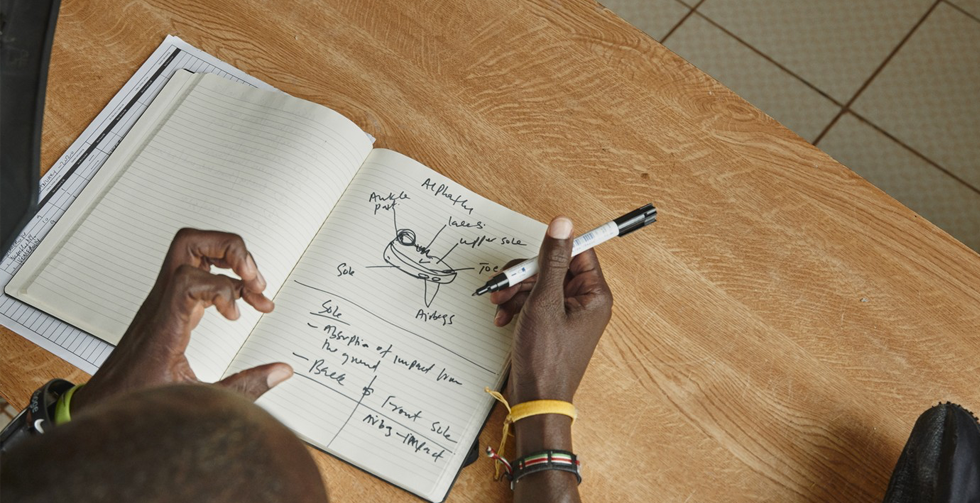 Alphafly
Ankle
part
laces
upper sole
Sole
Toe
Airbags
Sole
- Absorption of impact from
the ground
- Back & Front Sole
Airbag - Impact